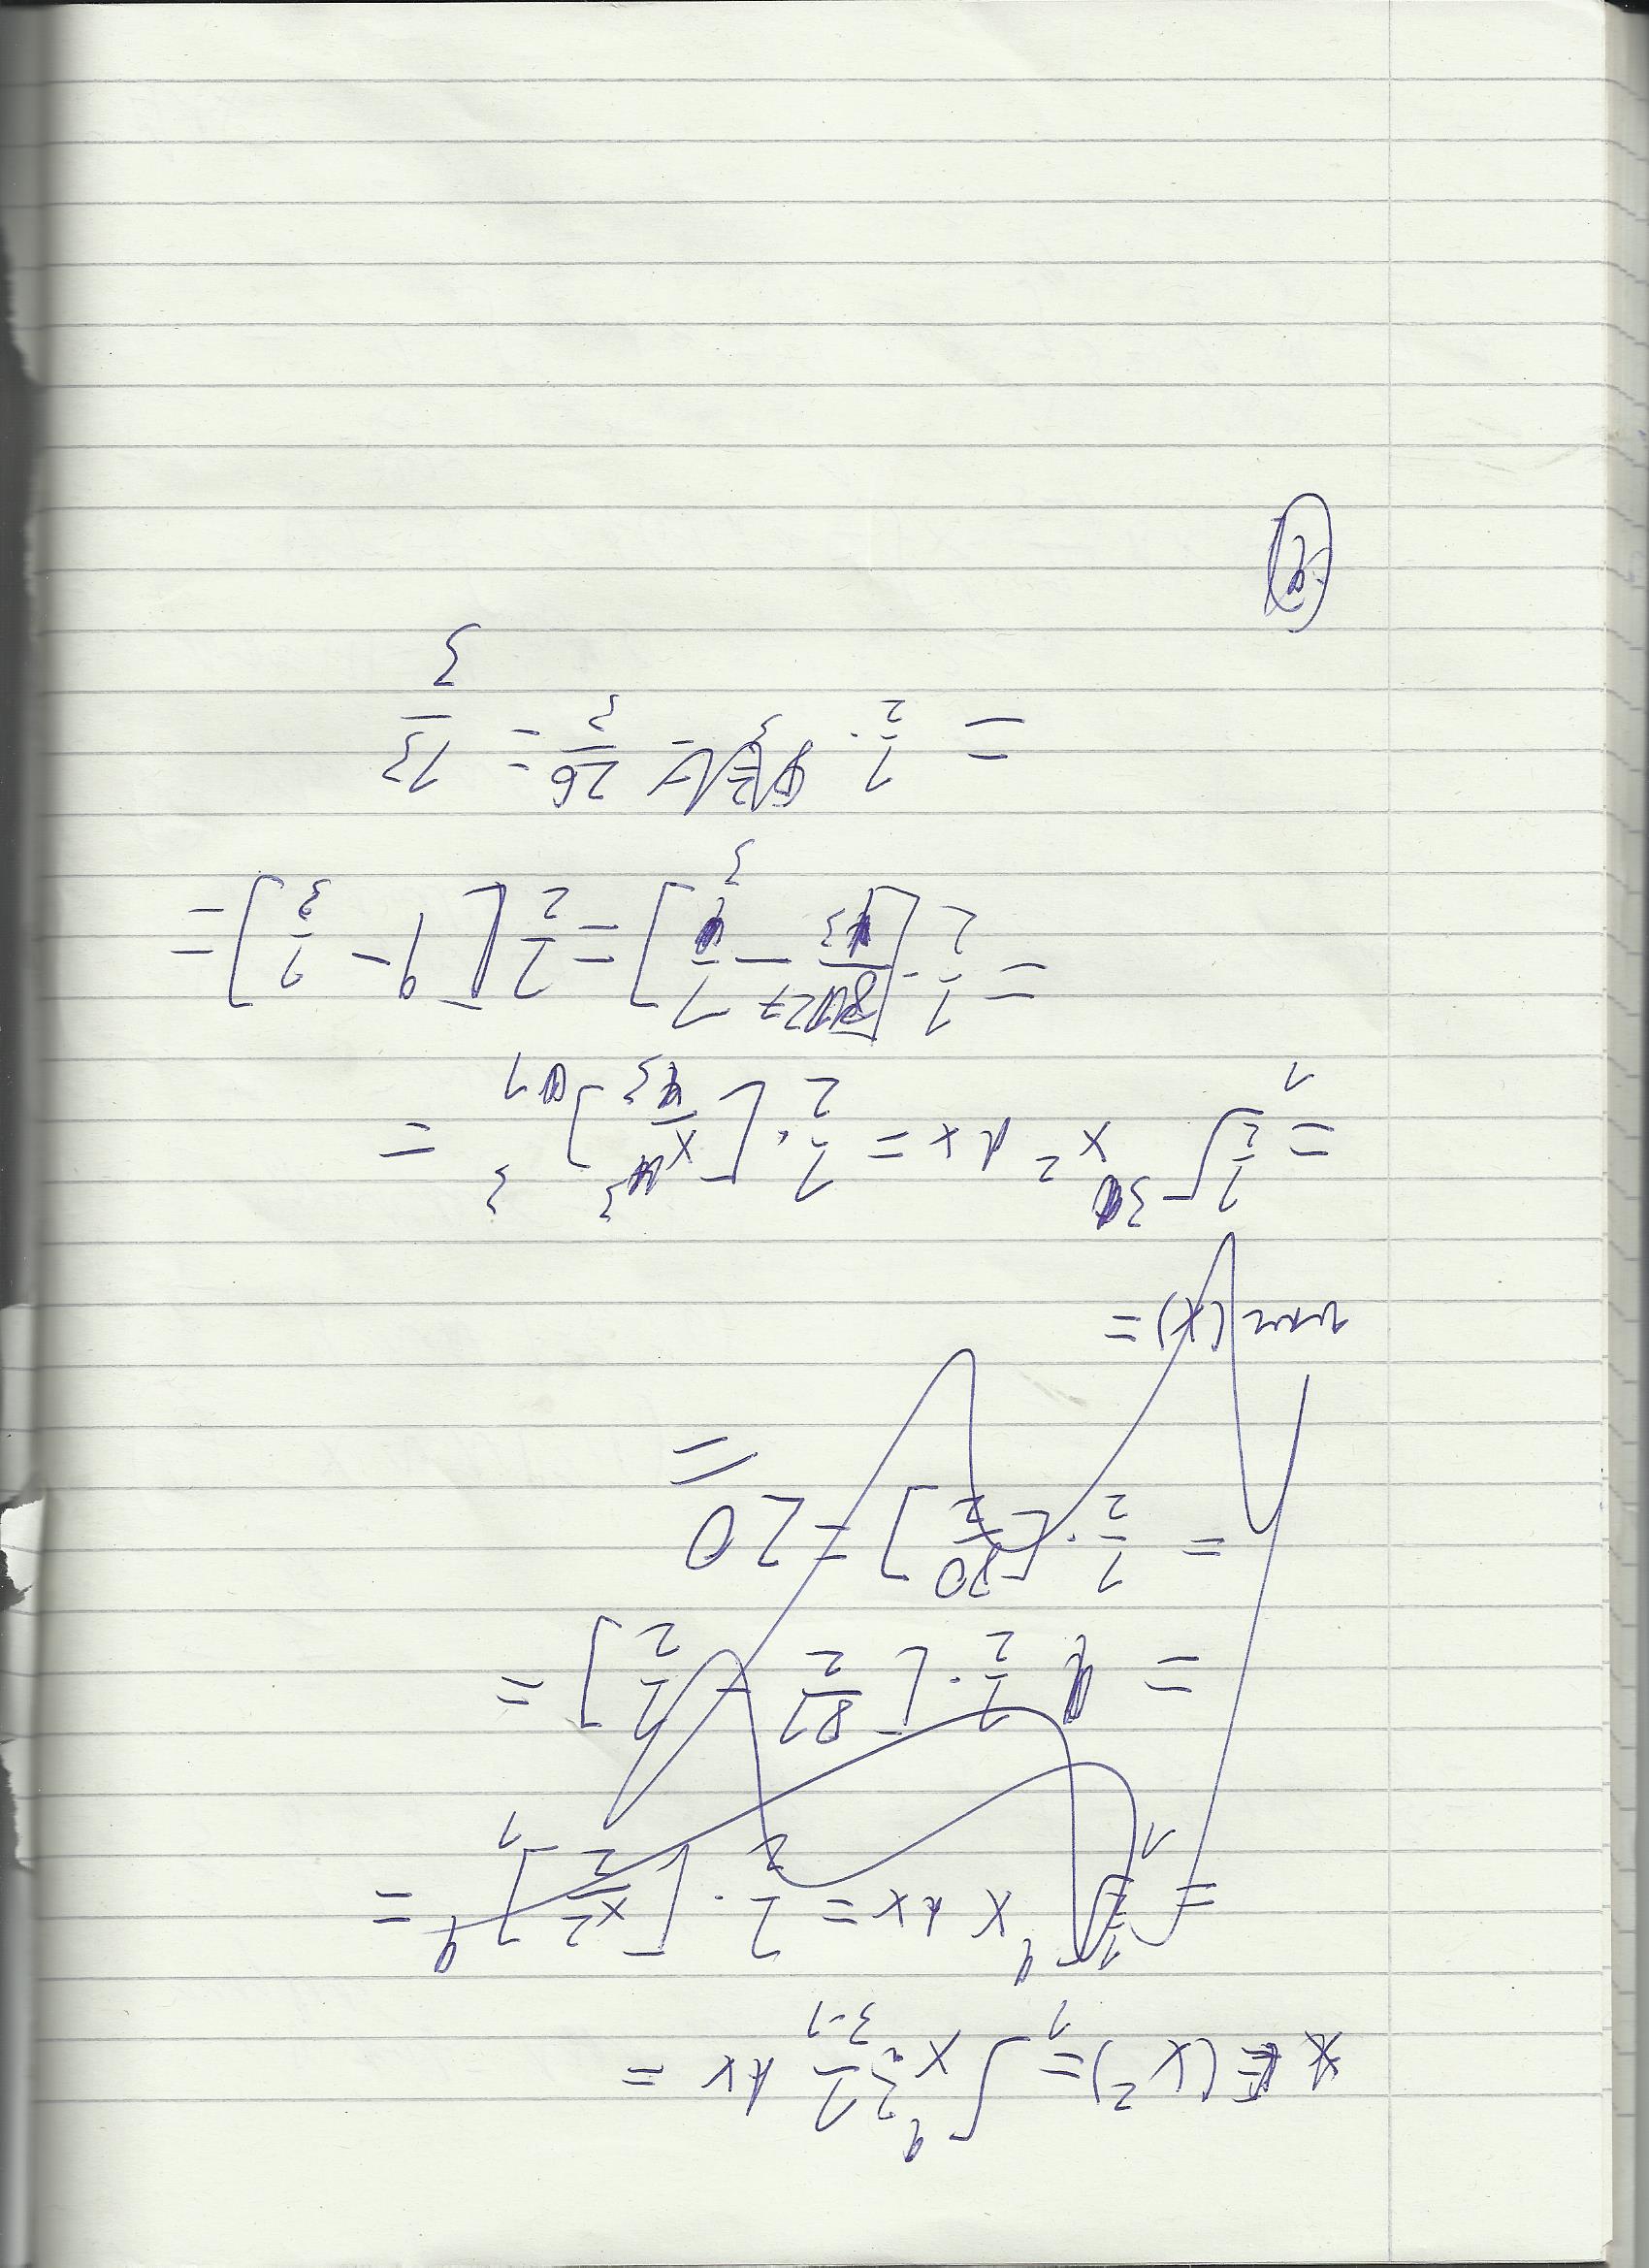 E(x²) = ∫₁⁹ x² · 1/(3-1) dx =
= 1/2 ₁∫⁹ x dx = 1/2 · [x²/2]₁⁹ =
= 1/2 · [81/2 - 1/2] =
= 1/2 · [80/2] = 20
var(x) =
= 1/2 ₁∫³ x² dx = 1/2 · [x³/3]₁³ =
= 1/2 · [27/3 - 1/3] = 1/2 [9 - 1/3] =
= 1/2 · 26/3 = 13/3